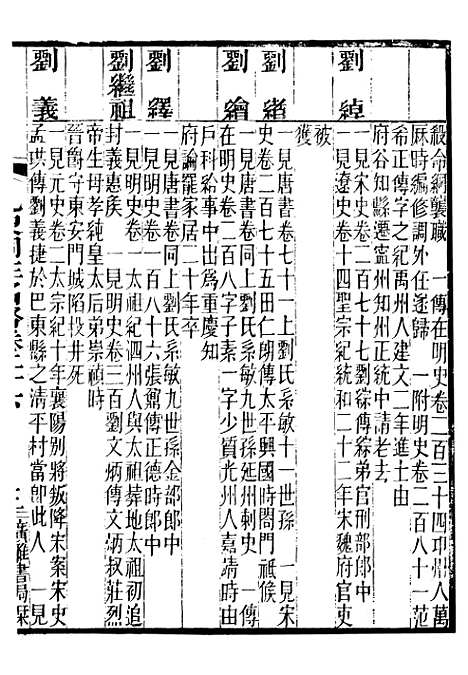 殺令綱襲職　一傳在明史卷二百三十四邛州人萬
厤時編修調外任遂歸　一附明史卷二百八十一范
希正傳字之紀禹州人建文二年進士由
府谷知縣遷寧州知州正統中請老去
劉綽
一見宋史卷二百七十七劉綜傳綜弟官刑部郎中
一見遼史卷十四聖宗紀統和二十二年宋魏府官吏
被
獲
劉緒
一見唐書卷七十一上劉氏系敏十一世孫　一見宋
史卷二百七十五田仁朗傳太平興國時閤門祗候
劉繪
一見唐書卷同上劉氏系敏九世孫延州刺史　一傳
在明史卷二百八字子素一字少質光州人嘉靖時由
戶科給事中出為重慶知
府論罷家居二十年卒
劉繹
一見唐書卷同上劉氏系敏九世孫金部郎中
一見明史卷一百八十六張鼐傳正德時郎中
劉繼祖
一見明史卷一太祖紀泗州人與太祖葬地太祖初追
封義惠矦　一見明史卷三百劉文炳傳文炳叔莊烈
帝生母孝純皇太后弟崇禎時
晉爵守東安門城陷投井死
劉義
一見元史卷二太宗紀十年襄陽別將叛降宋案宋史
孟珙傳劉義捷於巴東縣之清平村當卽此人　一見
廣雅書局栞